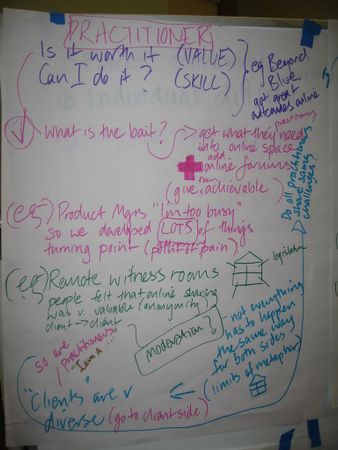 PRACTITIONER
Is it worth it (VALUE)
Can I do it? (SKILL)
eg Beyond
Blue
got great
outcomes online
What is the bait?
get what they need
into online space
add
online forums
(give achievable
(eg) Product Mgrs "I'm too busy"
so we developed LOTS of things
turning point (point of pain)
Do all practitioners
share same
challenges?
(eg) Remote witness rooms
people felt that online sharing
was v. valuable (anonymity)
client → client
legislation
Moderation!
not everything
has to happen
the same way
for both sides
(limits of metaphor)
so are
practitioners
"I am a ....
"Clients are v
diverse (go to client side)